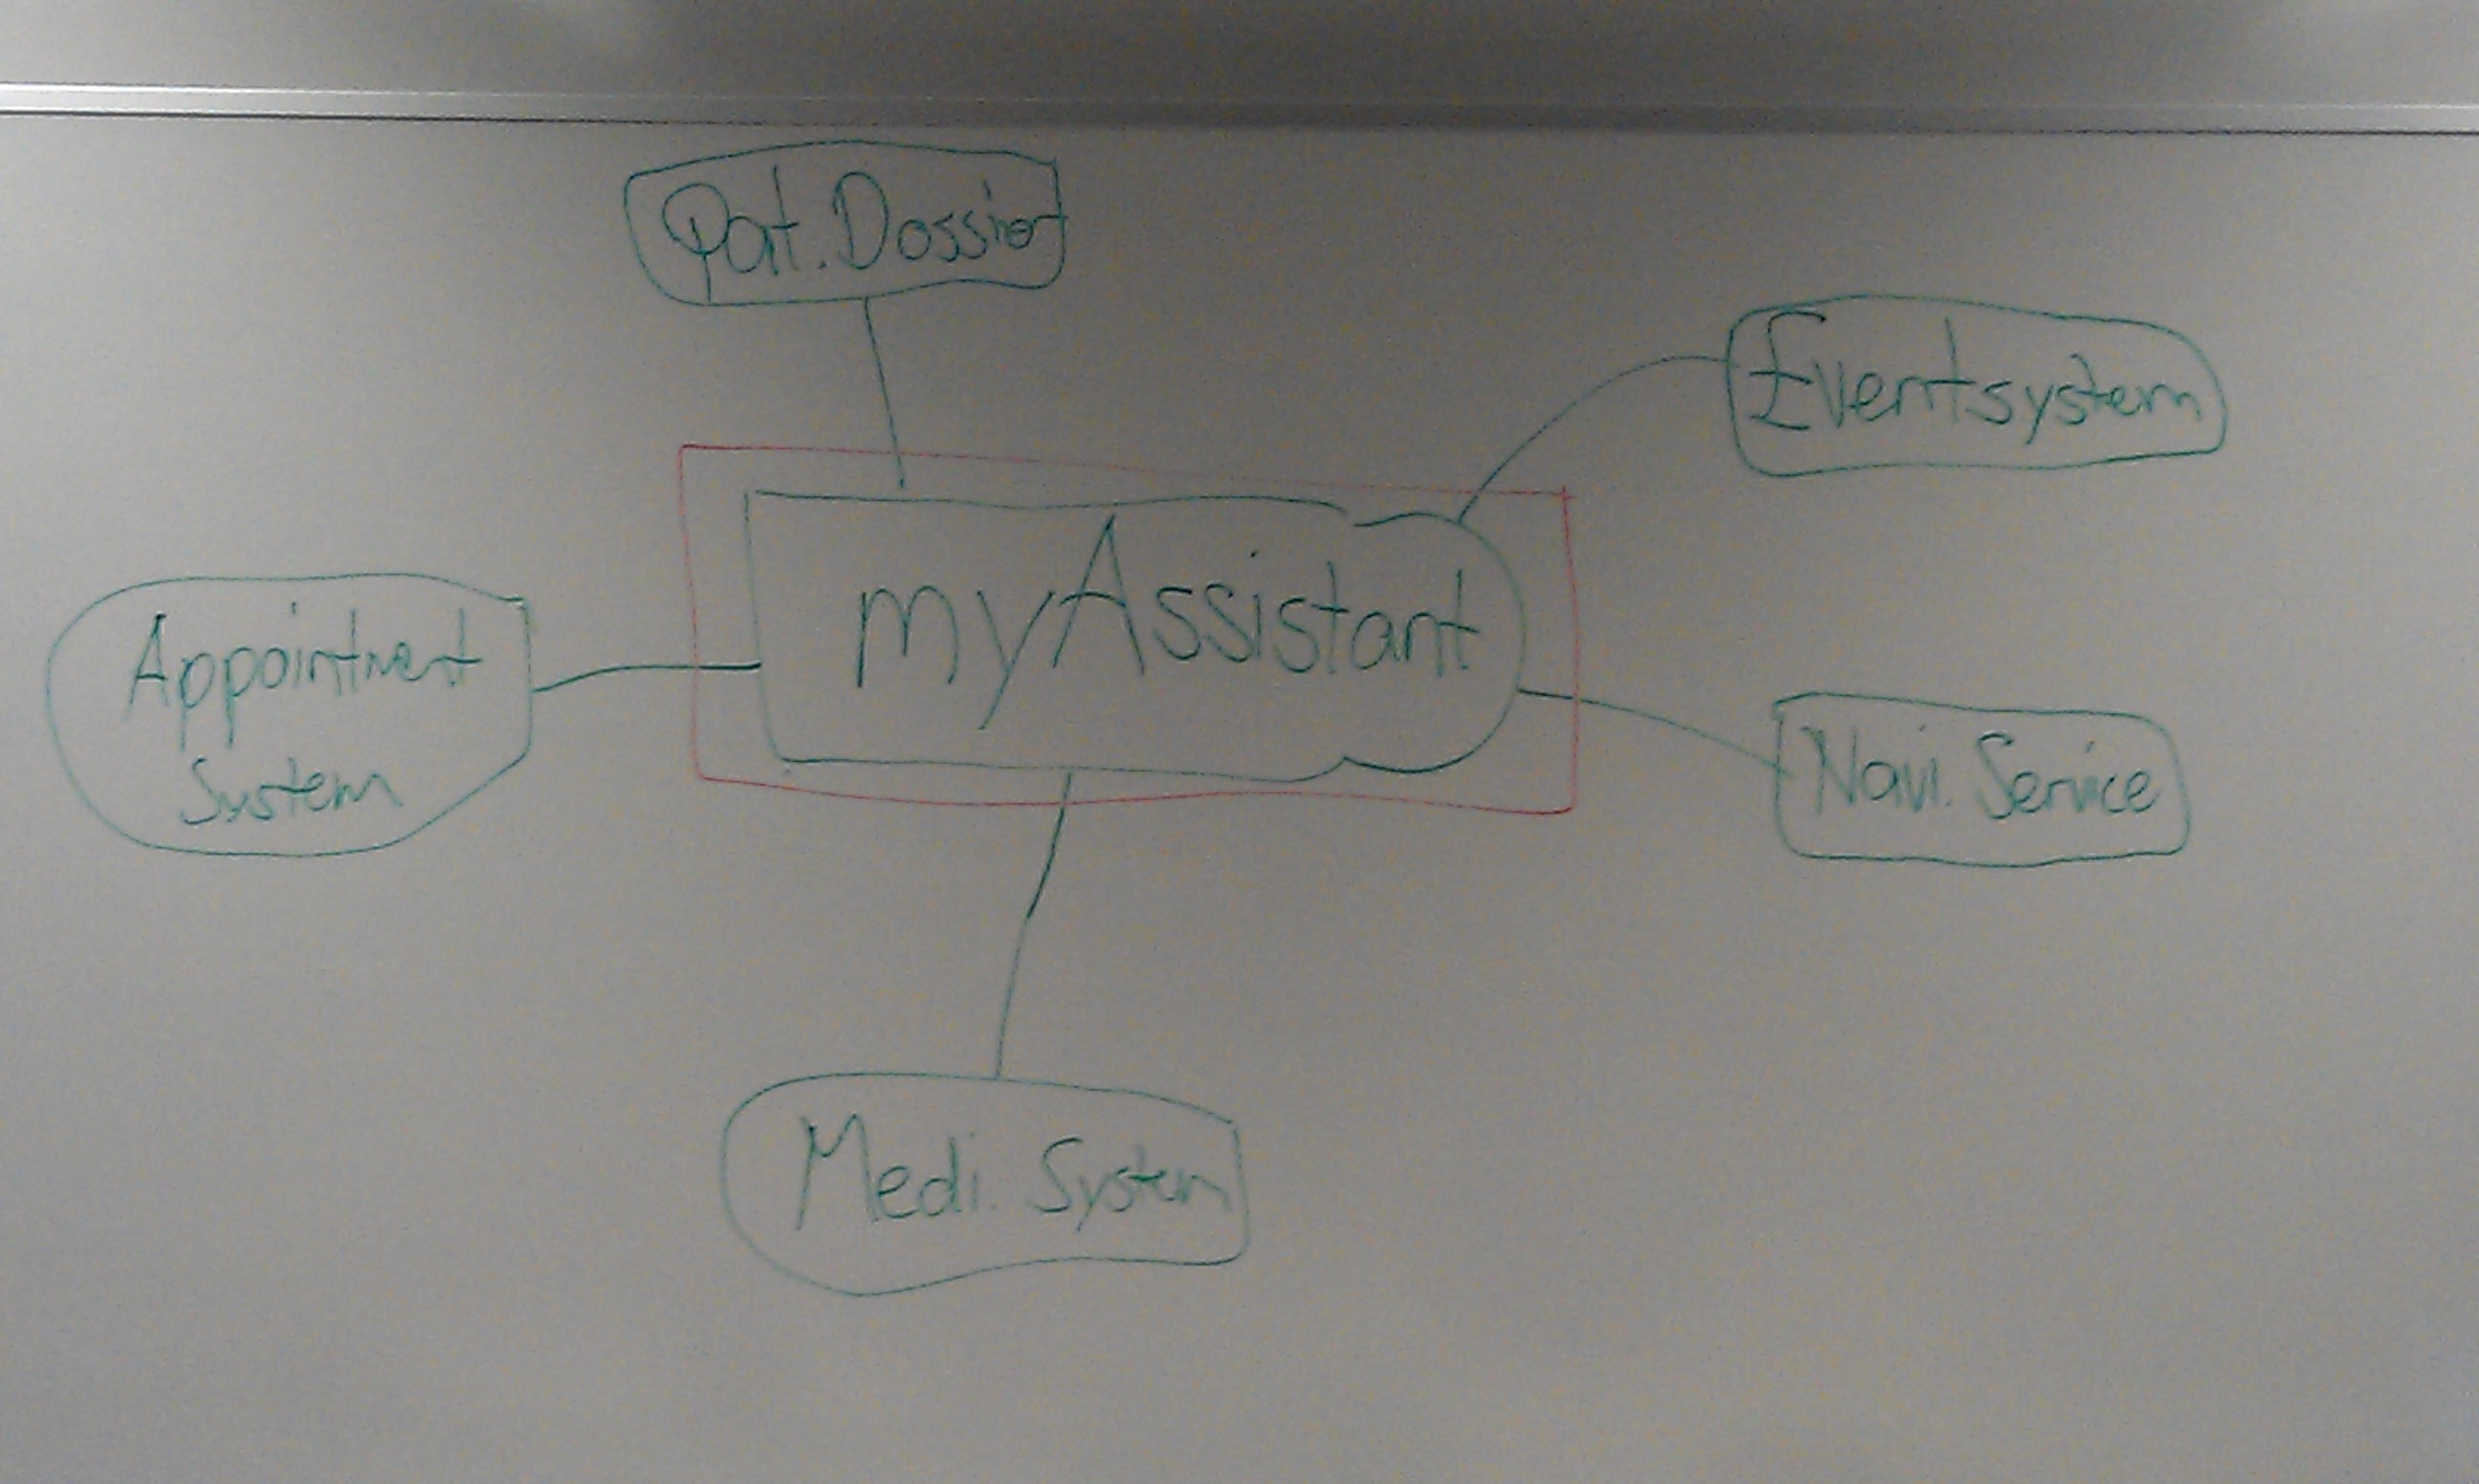 Pat. Dossier
Eventsystem
myAssistant
Appointment
System
Navi. Service
Medi. System